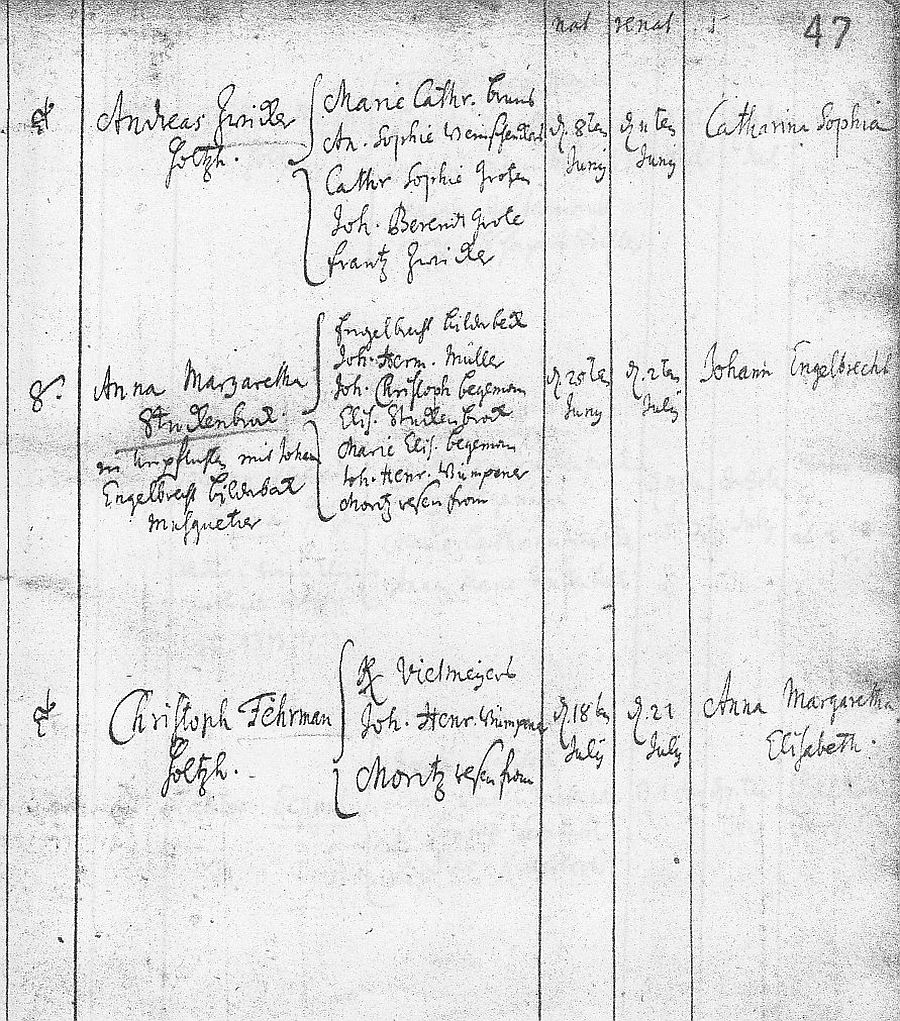 nat renat 47
Andreas Zwicker
Holtzh.
Marie Cathr. Bruns
An. Sophie
Cathr Sophie Groten
Joh. Berendt Grote
Frantz Zwicker
d. 8ten
Juny
d. 11ten
Juny
Catharina Sophia
Anna Margaretha
Studenbrok
mit Johan
Engelbrecht Bilderbek
Musquetier
Engelbrecht Bilderbek
Joh. Herm. Müller
Joh. Christoph Begeman
Elis. Studenbrok
Marie Elis. Begeman
Joh. Henr. Wümpener
Moritz
d. 20ten
Juny
d. 2ten
July
Johann Engelbrecht
Christoph Fehrman
Holtzh.
Vietmeyers
Joh. Henr. Wümpener
Moritz
d. 18ten
July
d. 21
July
Anna Margaretha
Elisabeth.